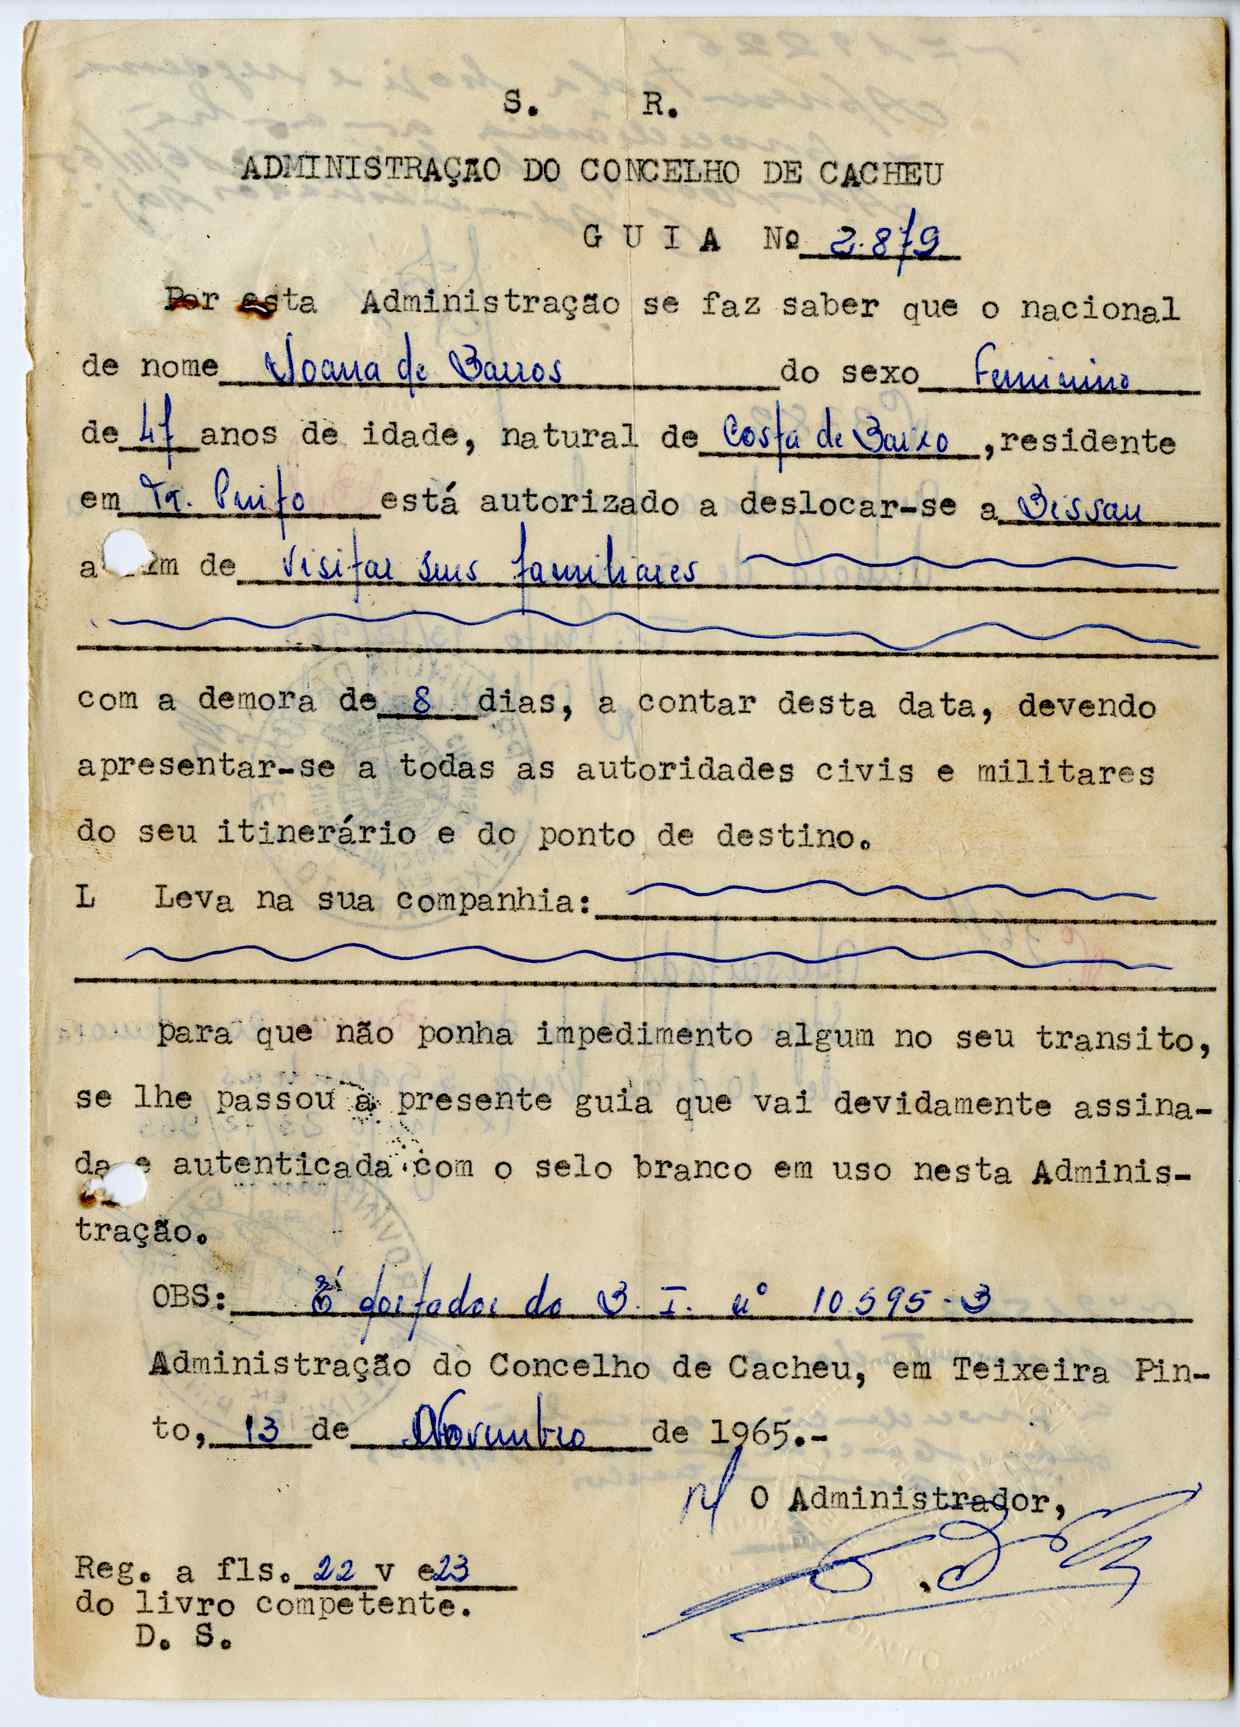 S. R.
ADMINISTRAÇÃO DO CONCELHO DE CACHEU
G U I A Nº 2.879
Por esta Administração se faz saber que o nacional
de nome Joana de Barros do sexo Feminino
de 47 anos de idade, natural de Costa de Baixo, residente
em Tx. Pinto está autorizado a deslocar-se a Bissau
a fim de visitar seus familiares
com a demora de 8 dias, a contar desta data, devendo
apresentar-se a todas as autoridades civis e militares
do seu itinerário e do ponto de destino.
L Leva na sua companhia:
para que não ponha impedimento algum no seu transito,
se lhe passou a presente guia que vai devidamente assina-
da e autenticada com o selo branco em uso nesta Adminis-
tração.
OBS: É portador do B. I. nº 10595-3
Administração do Concelho de Cacheu, em Teixeira Pin-
to, 13 de Novembro de 1965.-
O Administrador,
Reg. a fls. 22 v e 23
do livro competente.
D. S.